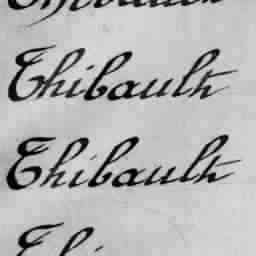 Thibault
Thibault